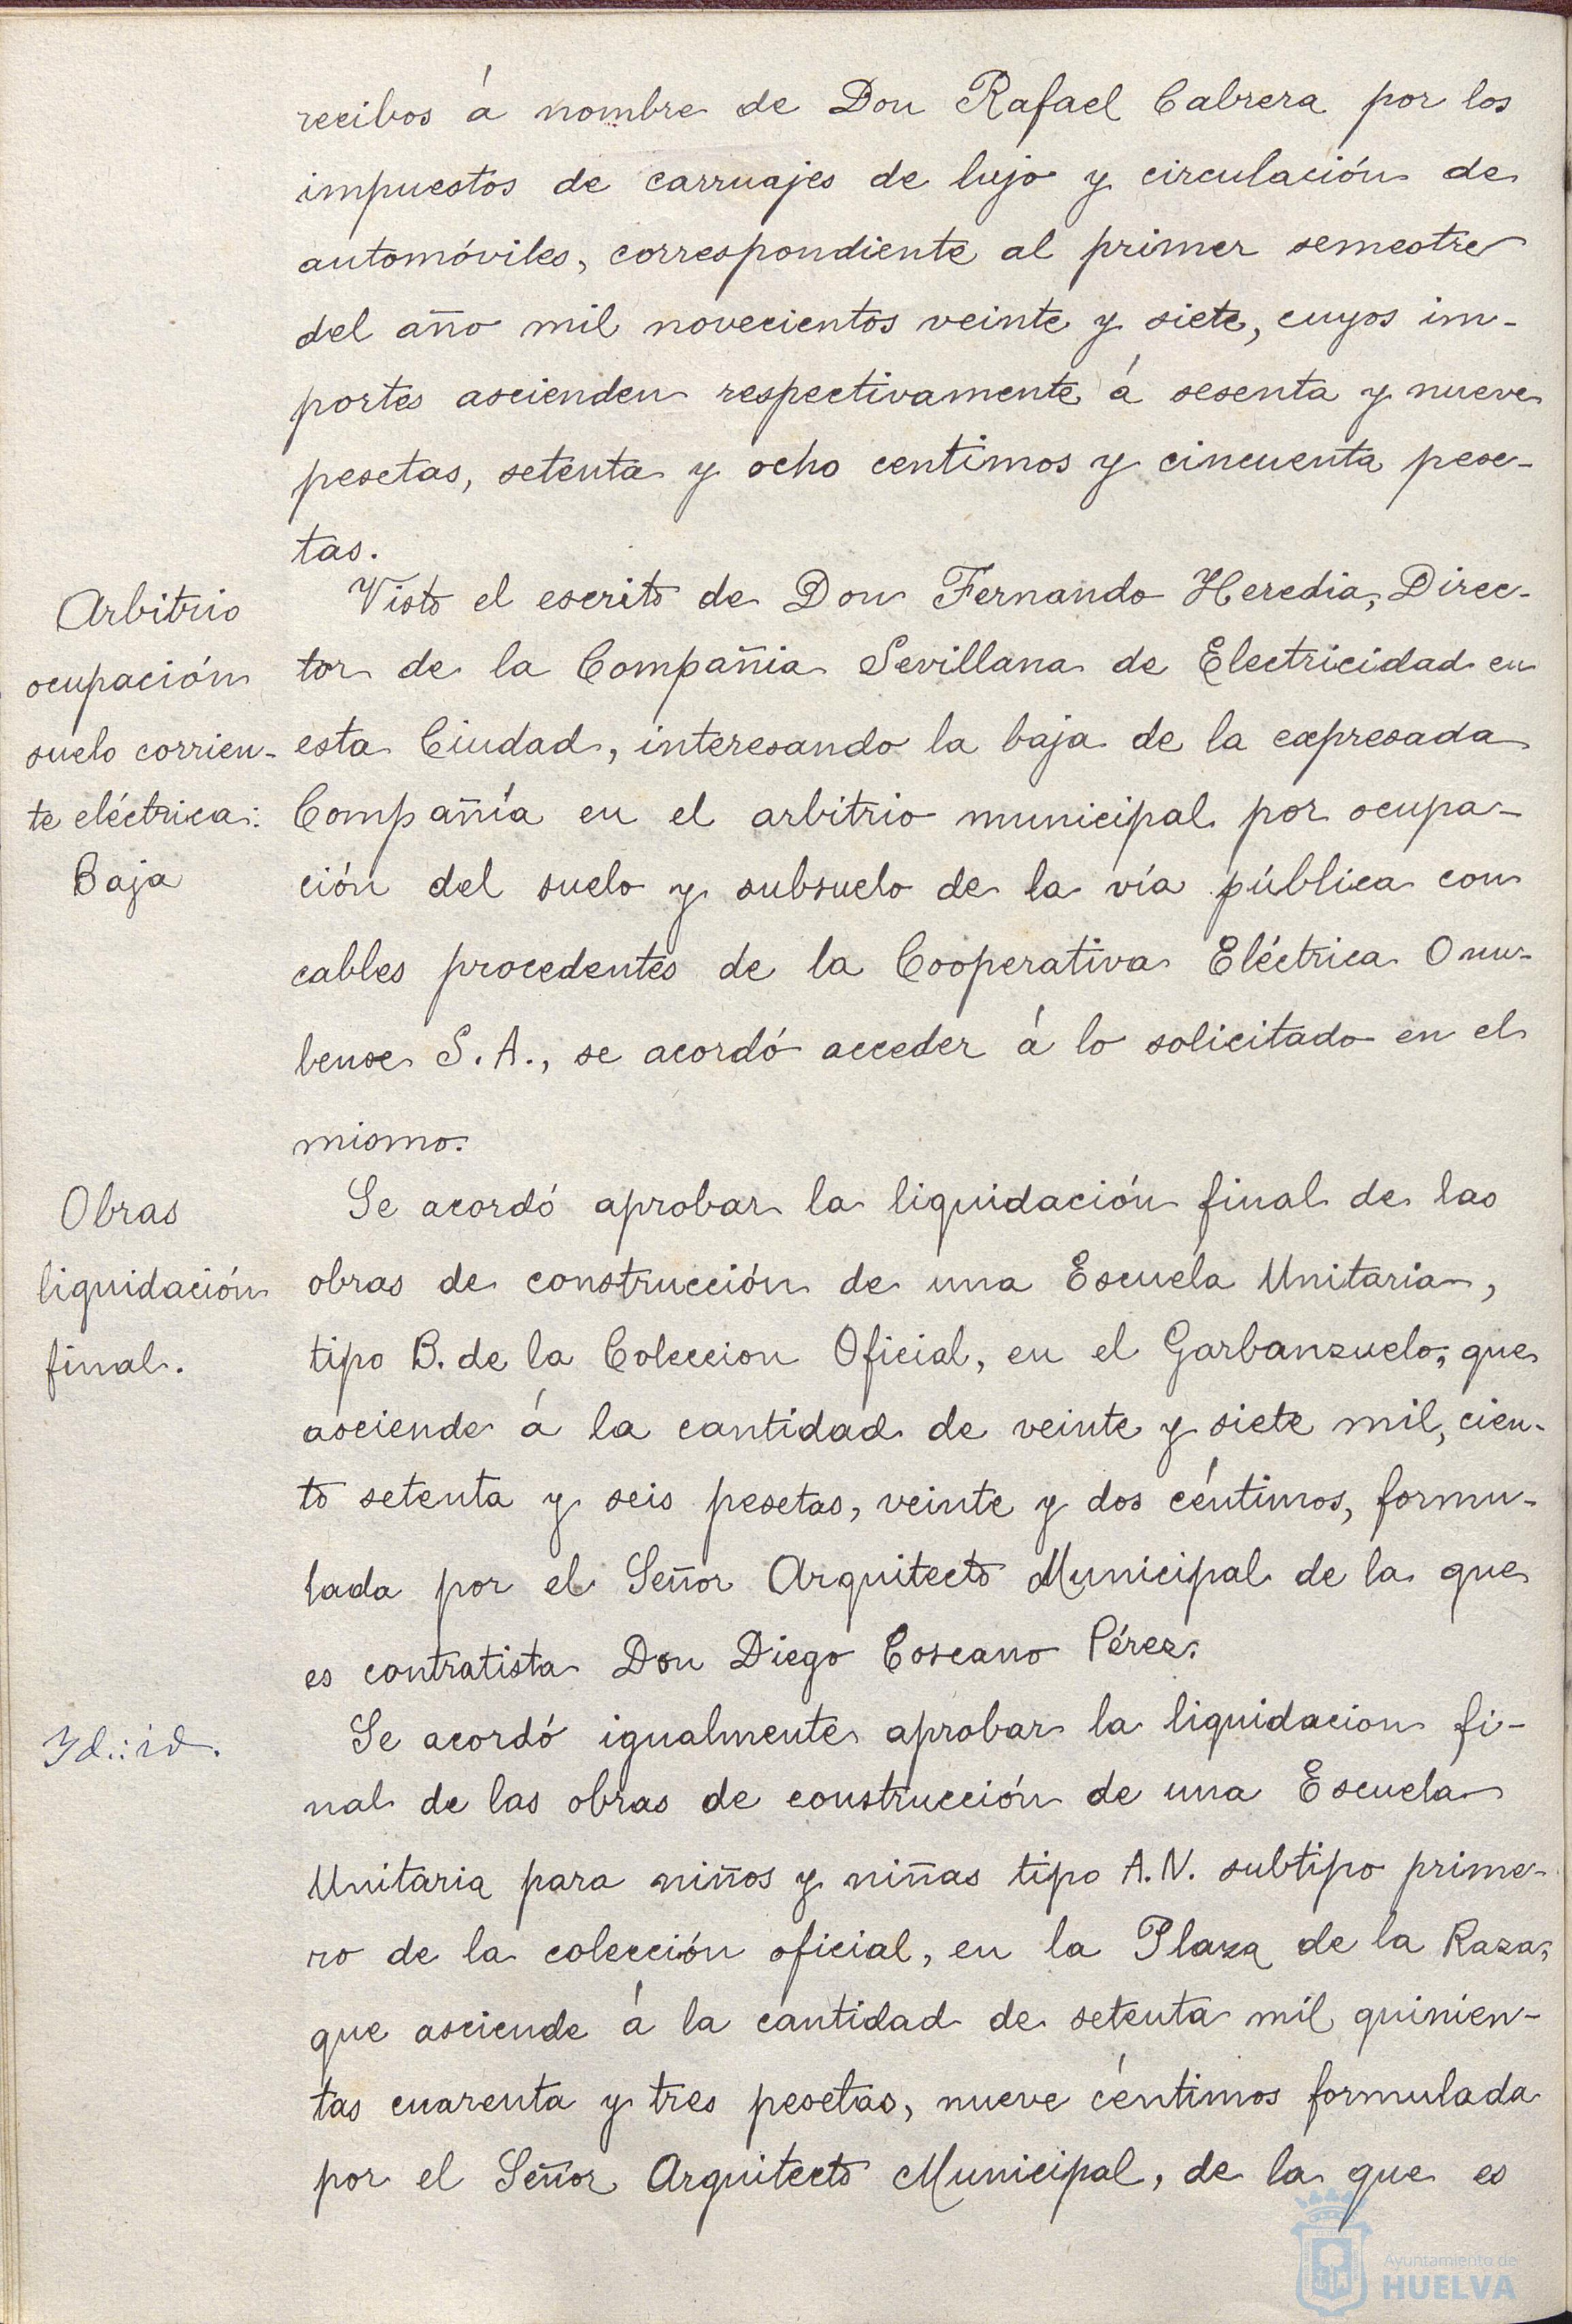 recibos á nombre de Don Rafael Cabrera por los
impuestos de carruajes de lujo y circulación de
automóviles, correspondiente al primer semestre
del año mil novecientos veinte y siete, cuyos im-
portes ascienden respectivamente á sesenta y nueve
pesetas, setenta y ocho centimos y cincuenta pese-
tas.
Arbitrio
ocupación
suelo corrien-
te eléctrica:
Baja
Visto el escrito de Don Fernando Heredia, Direc-
tor de la Compañia Sevillana de Electricidad en
esta Ciudad, interesando la baja de la expresada
Compañía en el arbitrio municipal por ocupa-
ción del suelo y subsuelo de la vía pública con
cables procedentes de la Cooperativa Eléctrica Onu-
bense S.A., se acordó acceder á lo solicitado en el
mismo.
Obras
liquidación
final.
Se acordó aprobar la liquidación final de las
obras de construcción de una Escuela Unitaria,
tipo B. de la Coleccion Oficial, en el Garbanzuelo, que
asciende á la cantidad de veinte y siete mil, cien-
to setenta y seis pesetas, veinte y dos céntimos, formu-
lada por el Señor Arquitecto Municipal de la que
es contratista Don Diego Toscano Pérez.
Yd.: id.
Se acordó igualmente aprobar la liquidacion fi-
nal de las obras de construcción de una Escuela
Unitaria para niños y niñas tipo A.N. subtipo prime-
ro de la colección oficial, en la Plaza de la Raza,
que asciende á la cantidad de setenta mil quinien-
tas cuarenta y tres pesetas, nueve céntimos formulada
por el Señor Arquitecto Municipal, de la que es
Ayuntamiento de
HUELVA